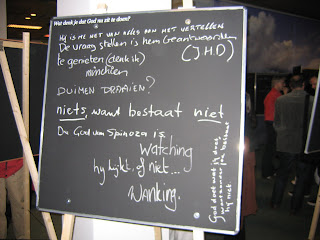 Wat denk je dat God nu zit te doen?
Hy is me net van alles aan het vertellen
De vraag stellen is hem beantwoorden
te genieten (denk ik) (JHD)
minstens
DUIMEN DRAAIEN?
niets, want bestaat niet
De God van Spinoza is
Watching
hy kykt. of niet...
Wanking.
God doet wat jij doet,
hij niet